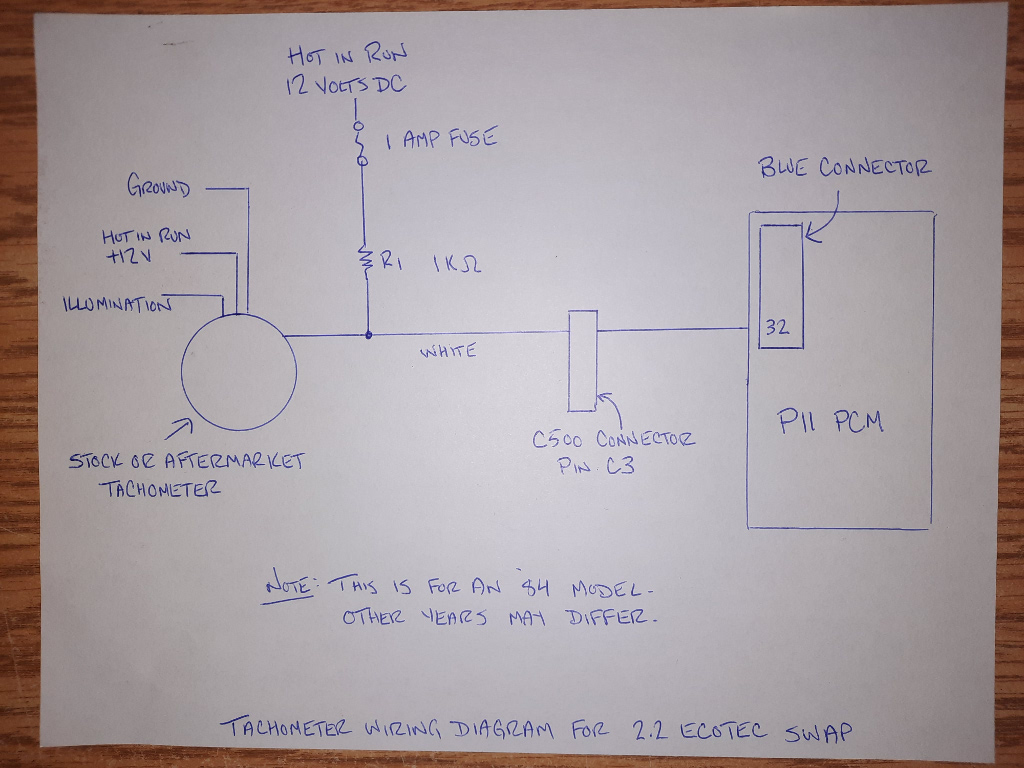 HOT IN RUN
12 VOLTS DC
1 AMP FUSE
BLUE CONNECTOR
GROUND
HOT IN RUN
+12V
R1 1KΩ
ILLUMINATION
32
WHITE
P11 PCM
C500 CONNECTOR
PIN C3
STOCK OR AFTERMARKET
TACHOMETER
NOTE: THIS IS FOR AN '84 MODEL.
OTHER YEARS MAY DIFFER.
TACHOMETER WIRING DIAGRAM FOR 2.2 ECOTEC SWAP